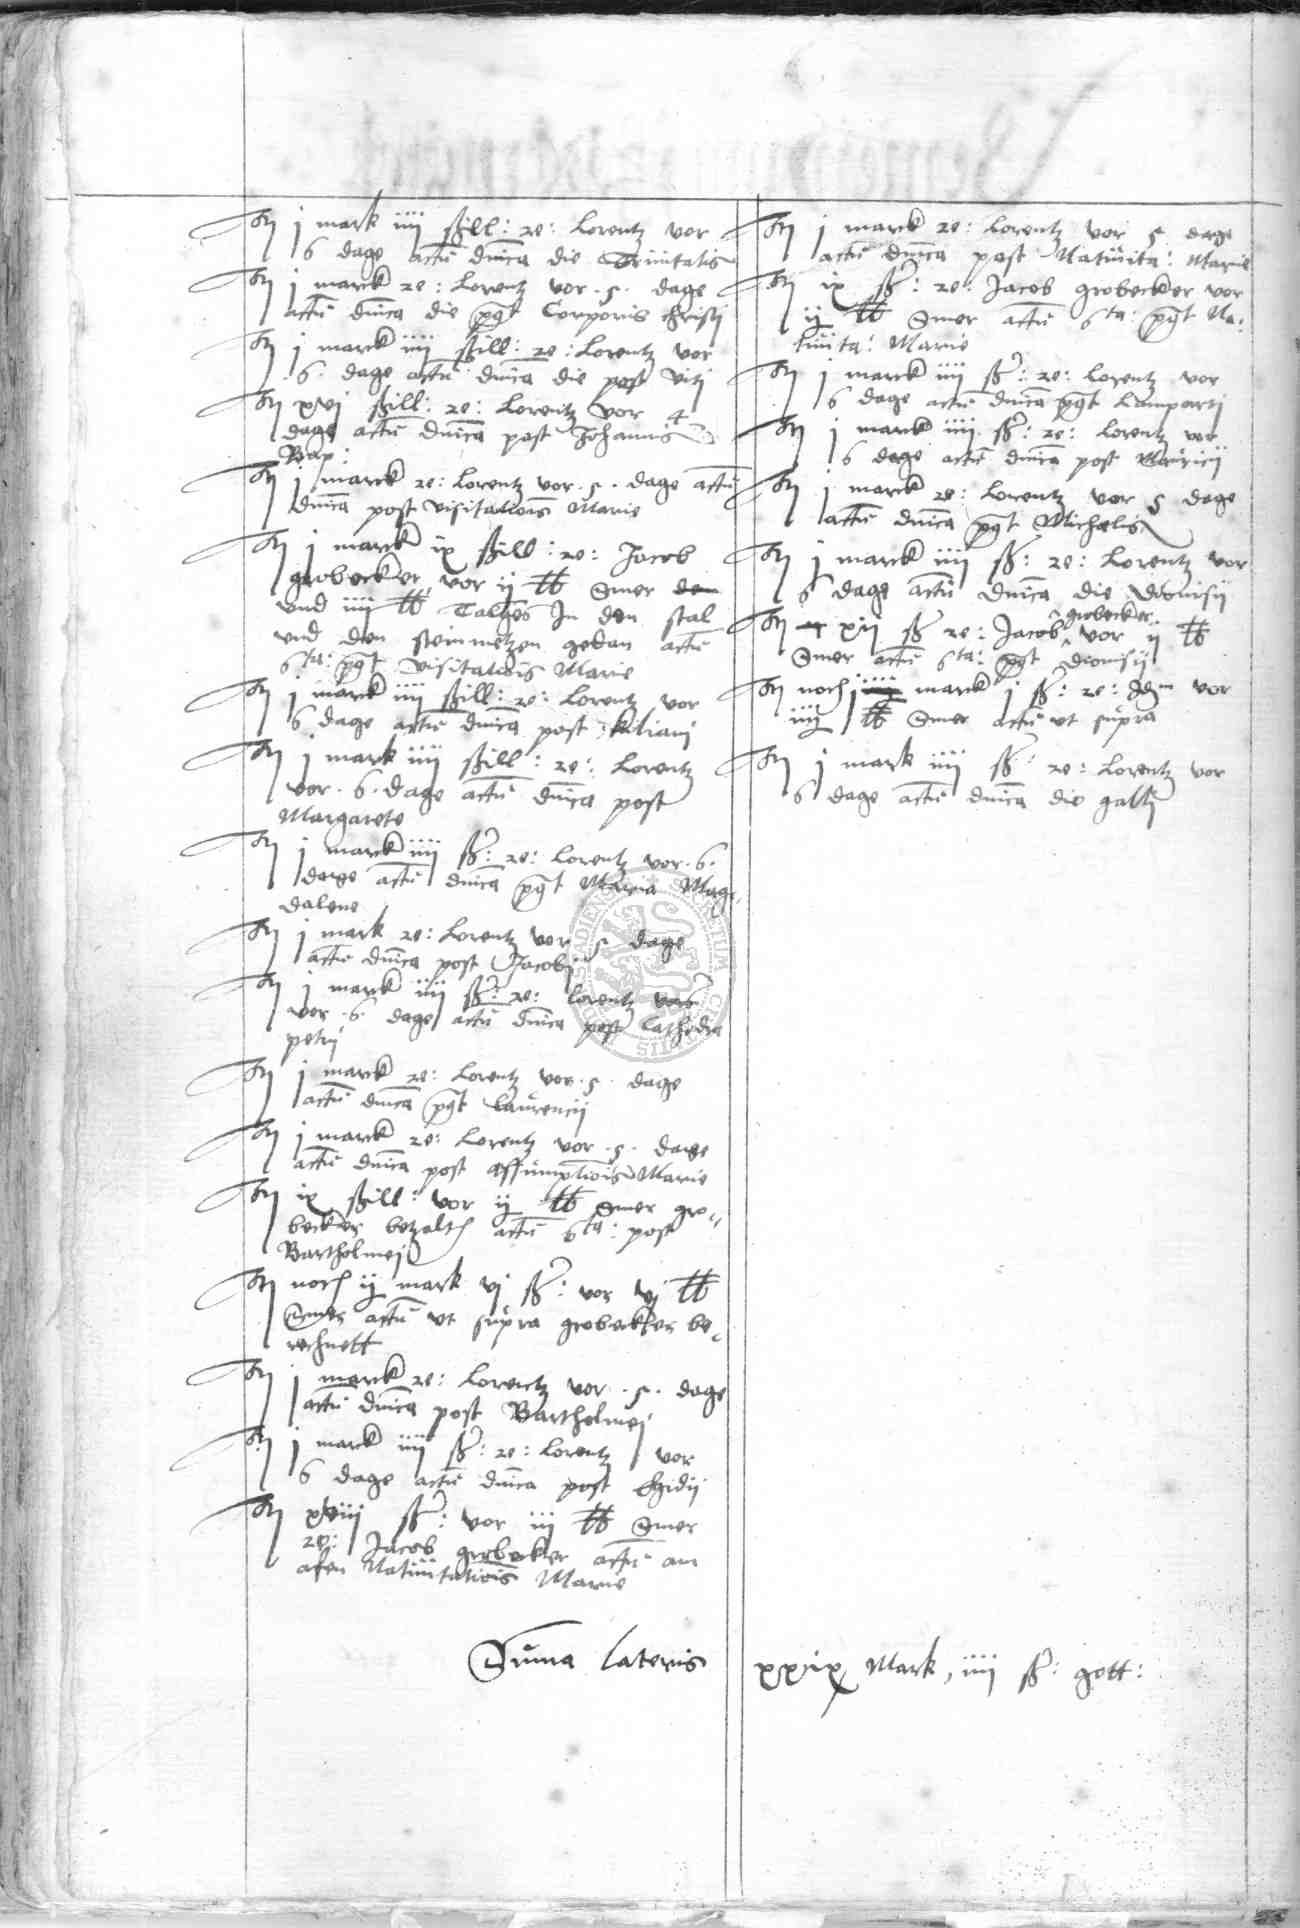 It j mark iiij ßill: re: Lorentz vor
6 dage actu dnica die Trinitatis
It j marck re: Lorentz vor .5. dage
actu dnica die post Corporis christi
It j marck iiij ßill: re: Lorentz vor
.6. dage actu dnica die post viti
It xvj ßill: re: Lorentz vor 4
dage actu dnica post Johannis
Bap:
It j marck re: Lorentz vor .5. dage actu
dnica post visitationis Marie
It j marck ix ßill: re: Jacob
grobecker vor ij lb Smer
vnd iiij lb Talges In den stal
vnd den steinmetzen gedan actu
6ta: post visitationis Marie
It j marck iiij ßill: re: Lorentz vor
6 dage actu dnica post kiliani
It j mark iiij ßill: re: Lorentz
vor .6. dage actu dnica post
Margarete
It j marck iiij ß: re: Lorentz vor .6.
dage actu dnica post Maria Mag
dalene
It j mark re: Lorentz vor 5 dage
actu dnica post Jacobi
It j marck iiij ß: re: Lorentz
vor .6. dage actu dnica post Cathedra
petri
It j marck re: Lorentz vor .5. dage
actu dnica post Laurencij
It j marck re: Lorentz vor .5. dage
actu dnica post assumptiois Marie
It ix ßill: vor ij lb Smer gro-
becker betzalt actu 6ta: post
Bartholmej
It noch ij mark vj ß: vor vj lb
Smer actu vt supra grobecker be-
rechnett
It j marck re: Lorentz vor .5. dage
actu dnica post Bartholmej
It j marck iiij ß: re: Lorentz vor
6 dage actu dnica post Egidij
It xviij ß: vor iiij lb Smer
re: Jacob grobecker actu am
afen Natiuitatiois Marie
It j marck re: Lorentz vor 5 dage
actu dnica post Natiuita: Marie
It ix ß: re: Jacob grobecker vor
ij lb Smer actu 6ta: post Na:
tiuita: Marie
It j marck iiij ß: re: Lorentz vor
6 dage actu dnica post Lamparti
It j marck iiij ß: re: Lorentz vor
6 dage actu dnica post Mauricij
It j marck re: Lorentz vor 5 dage
actu dnica post Michaelis
It j marck iiij ß: re: Lorentz vor
6 dage actu dnica die Dionisij
It xij ß re: Jacob grobecker vor ij lb
Smer actu 6ta: post Dionisij
It noch j marck j ß: re: vor
iiij lb Smer actu vt supra
It j mark iiij ß: re: Lorentz vor
6 dage actu dnica die galli
Suma lateris xxix Mark, iiij ß: gott: